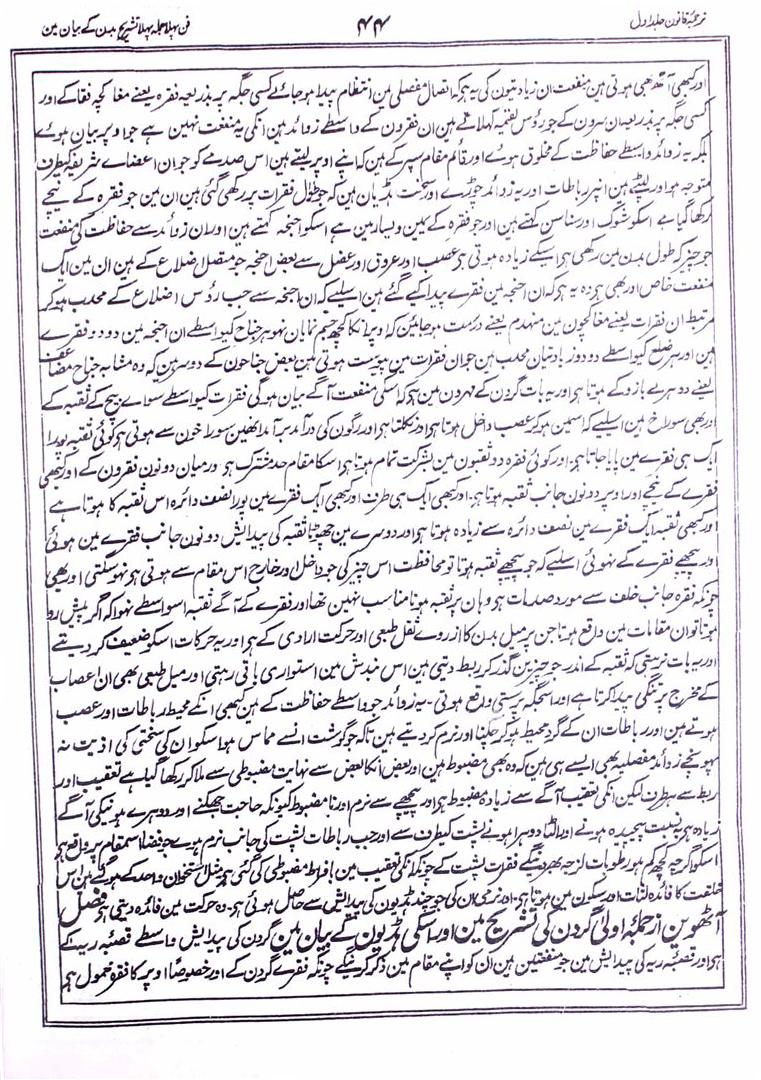 ترجمۂ قانون جلد اول
۴۴
فن پہلا جملہ پہلا تشریح بدن کے بیان مین
اور کبھی آٹھ بھی ہوتی ہین منفعت ان زیادتیون کی یہ ہی کہ اتصال مفصلی مین انتظام پیدا ہو جائے کسی جگہ پر بذریعہ نقرہ یعنے مغاکچہ فقا کے اور
کسی جگہ پر بذریعہ ان سرون کے جو رؤس لقمیہ کہلاتے ہین ان فقرون کے واسطے زوائد ہین انکی یہ منفعت نہین ہے جو اوپر بیان ہوئے
بلکہ یہ زوائد واسطے حفاظت کے مخلوق ہوئے اور قائم مقام سپر کے ہین کہ اپنے اوپر لیتے ہین اس صدمے کو جو ان اعضاے شریفہ کیطرف
متوجہ ہو اور لپٹے ہین انپر رباطات اور یہ زوائد چوڑے اور سخت ہڈیان ہین کہ جو طول فقرات پر رکھی گئی ہین ان مین جو فقرہ کے نیچے
رکھا گیا ہے اسکو شوک اور سناسن کہتے ہین اور جو فقرہ کے یمین و یسار مین ہے اسکو اجنحہ کہتے ہین اور ان زوائد سے حفاظت کی منفعت
جو چیز کہ طول بدن مین رکھی ہی اسکے زیادہ ہوتی ہی عصب اور عروق اور عضل سے بعض اجنحہ جو متصل اضلاع کے ہین ان مین ایک
منفعت خاص اور بھی ہی وہ یہ ہی کہ ان اجنحہ مین نقرے پیدا کیے گئے ہین اسلیے کہ ان اجنحہ سے جب رؤس اضلاع کے محدب ہو کر
مرتبط ان نقرات یعنے مغاکچون مین منہدم یعنے درست ہو جائین کہ اوپر انکا کچھ حجم نمایان نہو ہر جناح کیواسطے ان اجنحہ مین دو دو نقرے
ہین اور ہر ضلع کیواسطے دو دو زیادتیان محدب ہین جو ان نقرات مین پیوست ہوتی ہین بعض جناحون کے دو سر ہین کہ وہ مشابہ جناح مضاعف
یعنے دوہرے بازو کے ہوتا ہی اور یہ بات گردن کے مہرون مین ہی کہ اسکی منفعت آگے بیان ہوگی فقرات کیواسطے سواے بیچ کے ثقبہ کے
اور بھی سوراخ ہین اسلیے کہ اسمین ہو کر عصب داخل ہوتا ہی اور نکلتا ہی اور رگون کی درآمد برآمد انھین سوراخون سے ہوتی ہی کوئی ثقبہ پورا
ایک ہی فقرے مین پایا جاتا ہی۔ اور کوئی فقرہ دو ثقبون مین بشرکت تمام ہوتا ہی اسکا مقام حد مشترک ہی درمیان دونون فقرون کے اور کبھی
فقرے کے نیچے اور اوپر دونون جانب ثقبہ ہوتا ہے۔ اور کبھی ایک ہی طرف اور کبھی ایک فقرے مین پورا نصف دائرہ اس ثقبہ کا ہوتا ہے
اور کبھی ثقبہ ایک فقرے مین نصف دائرہ سے زیادہ ہوتا ہی اور دوسرے مین چھوٹا ثقبہ کی پیدایش دونون جانب فقرے مین ہوئی
اور پیچھے فقرے کے نہوئی اسلیے کہ جو پیچھے ثقبہ ہوتا تو محافظت اس چیز کی جو داخل اور خارج اس مقام سے ہوتی ہی نہو سکتی اور بھی
چونکہ فقرہ جانب خلف سے مورد صدمات ہی وہان پر ثقبہ ہونا مناسب نہین تھا اور فقرے کے آگے ثقبہ اسواسطے نہوا کہ اگر پیش رو
ہوتا تو ان مقامات مین واقع ہوتا جن پر میل بدن کا ازروے ثقل طبعی اور حرکت ارادی کے ہی اور یہ حرکات اسکو ضعیف کر دیتے
اور یہ بات نرہتی کہ ثقبہ کے اندر جو چیزین گذر کر ربط دیتی ہین اس بندش مین استواری باقی رہتی اور میل طبعی بھی ان اعصاب
کے مخرج پر تنگی پیدا کرتا ہے اور اسجگہ پر سستی واقع ہوتی۔ یہ زوائد جو واسطے حفاظت کے ہین کبھی انکے محیط رباطات اور عصب
ہوتے ہین اور رباطات ان کے گرد محیط ہو کر چکنا اور نرم کر دیتے ہین تاکہ جو گوشت انسے مماس ہو اسکو ان کی سختی کی اذیت نہ
پہونچے زوائد مفصلیہ بھی ایسے ہی ہین کہ وہ بھی مضبوط ہین اور بعض انکا بعض سے نہایت مضبوطی سے ملا کر رکھا گیا ہے تعقیب اور
ربط سے ہر طرف لیکن انکی تعقیب آگے سے زیادہ مضبوط ہی اور پیچھے سے نرم اور نا مضبوط کیونکہ حاجت جھکنے اور دوہرے ہونیکی آگے
زیادہ ہی بہ نسبت پیچیدہ ہونے اور الٹا دوہرا ہونے پشت کیطرف سے اور جب رباطات پشت کی جانب نرم ہوے جو فضا اس مقام پر واقع ہی
اسکو اگرچہ کچھ کم ہو رطوبات لزجہ بھر دینگے فقرات پشت کے چونکہ انکی تعقیب مین بافراط مضبوطی کی گئی ہی مثل استخوان واحد کے ہوگئے ہین اس
خلقت کا فائدہ ثبات اور سکون مین ہوتا ہی۔ اور نرمی ان کی جو چند ہڈیون کی پیدایش سے حاصل ہوئی ہی۔ وہ حرکت مین فائدہ دیتی ہی فصل
آٹھوین از جملۂ اولی گردن کی تشریح مین اور اسکی ہڈیون کے بیان مین گردن کی پیدایش واسطے قصبۂ ریہ کے
ہی اور قصبۂ ریہ کی پیدایش مین جو منفعتین ہین ان کو اپنے مقام مین ذکر کرینگے چونکہ فقرے گردن کے اور خصوصاً اوپر کا فقرہ محمول ہی